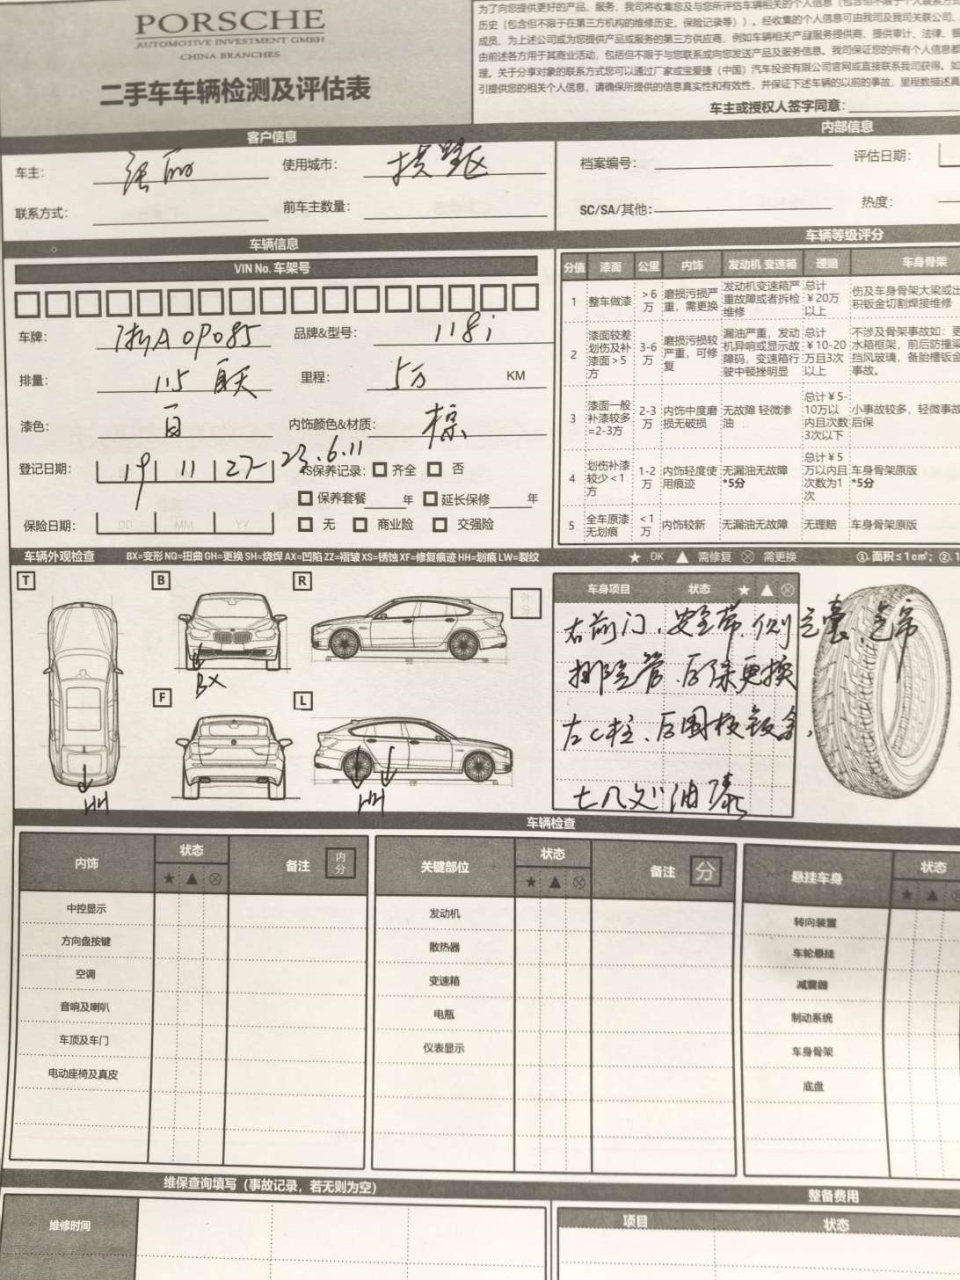 PORSCHE
AUTOMOTIVE INVESTMENT GMBH
CHINA BRANCHES
二手车车辆检测及评估表
为了向您提供更好的产品、服务，我司将收集您及与您所评估车辆相关的个人信息
历史（包含但不限于在第三方机构的维修历史，保险记录等））。经收集的个人信息可由我司及我司关联公司、
成员，为上述公司或为您提供产品或服务的第三方供应商，例如车辆相关产品服务提供商、提供审计、法律、
由前述各方用于其商业活动，包括但不限于与您联系或向您发送产品及服务信息。我司保证您的所有个人信息都
理。关于分享对象的联系方式您可以通过厂家或宝爱捷（中国）汽车投资有限公司官网或直接联系我司获得。如
引提供您的相关个人信息，请确保所提供的信息真实性和有效性，并保证下述车辆的以前的事故，里程数描述真
车主或授权人签字同意：
客户信息
内部信息
车主： 张丽
使用城市： 拱墅区
档案编号：
评估日期：
联系方式：
前车主数量：
SC/SA/其他：
热度：
车辆信息
车辆等级评分
VIN No. 车架号
车牌： 浙A0P085
品牌&型号： 118i
排量： 1.5
里程： 5万 KM
漆色： 白
内饰颜色&材质： 棕
登记日期： 19 11 27
23.6.11
保养记录： 齐全 否
保养套餐 年 延长保修 年
保险日期： DD MM YY
无 商业险 交强险
分值 漆面 公里 内饰 发动机 变速箱 理赔 车身骨架
1 整车做漆 >6万 磨损污损严重，需更换 发动机变速箱严重故障或者拆检维修 总计￥20万以上 伤及车身骨架大梁或出
积钣金切割焊接维修
2 漆面较差划伤及补漆面>5方 3-6万 磨损污损较严重，可修复 漏油严重，发动机异响或显示故障码，变速箱行驶中顿挫明显 总计￥10-20万且3次以上 不涉及骨架事故如：更
水箱框架，前后防撞梁
挡风玻璃，备胎槽钣金
事故。
3 漆面一般补漆较多=2-3方 2-3万 内饰中度磨损无破损 无故障 轻微渗油 总计￥5-10万以内且次数3次以下 小事故较多，轻微事故
后保
4 划伤补漆较少<1方 1-2万 内饰轻度使用痕迹 无漏油无故障 *5分 总计￥5万以内且次数为1次 车身骨架原版 *5分
5 全车原漆无划痕 <1万 内饰较新 无漏油无故障 无理赔 车身骨架原版
车辆外观检查 BX=变形 NQ=扭曲 GH=更换 SH=烧焊 AX=凹陷 ZZ=褶皱 XS=锈蚀 XF=修复痕迹 HH=划痕 LW=裂纹
★ OK ▲ 需修复 ⊗ 需更换 ①. 面积≤1cm²；②.
T B R
外分
BX
F L
HH HH
车身项目 状态 ★ ▲ ⊗
右前门、安全带、侧气囊、
排气管、后保更换
左C柱、后围板钣金，
油漆
车辆检查
内饰 状态 备注 内分
★ ▲ ⊗
中控显示
方向盘按键
空调
音响及喇叭
车顶及车门
电动座椅及真皮
关键部位 状态 备注 分
★ ▲ ⊗
发动机
散热器
变速箱
电瓶
仪表显示
悬挂车身 状态
★ ▲
转向装置
车轮悬挂
减震器
制动系统
车身骨架
底盘
维保查询填写（事故记录，若无则为空）
整备费用
维修时间
项目 状态